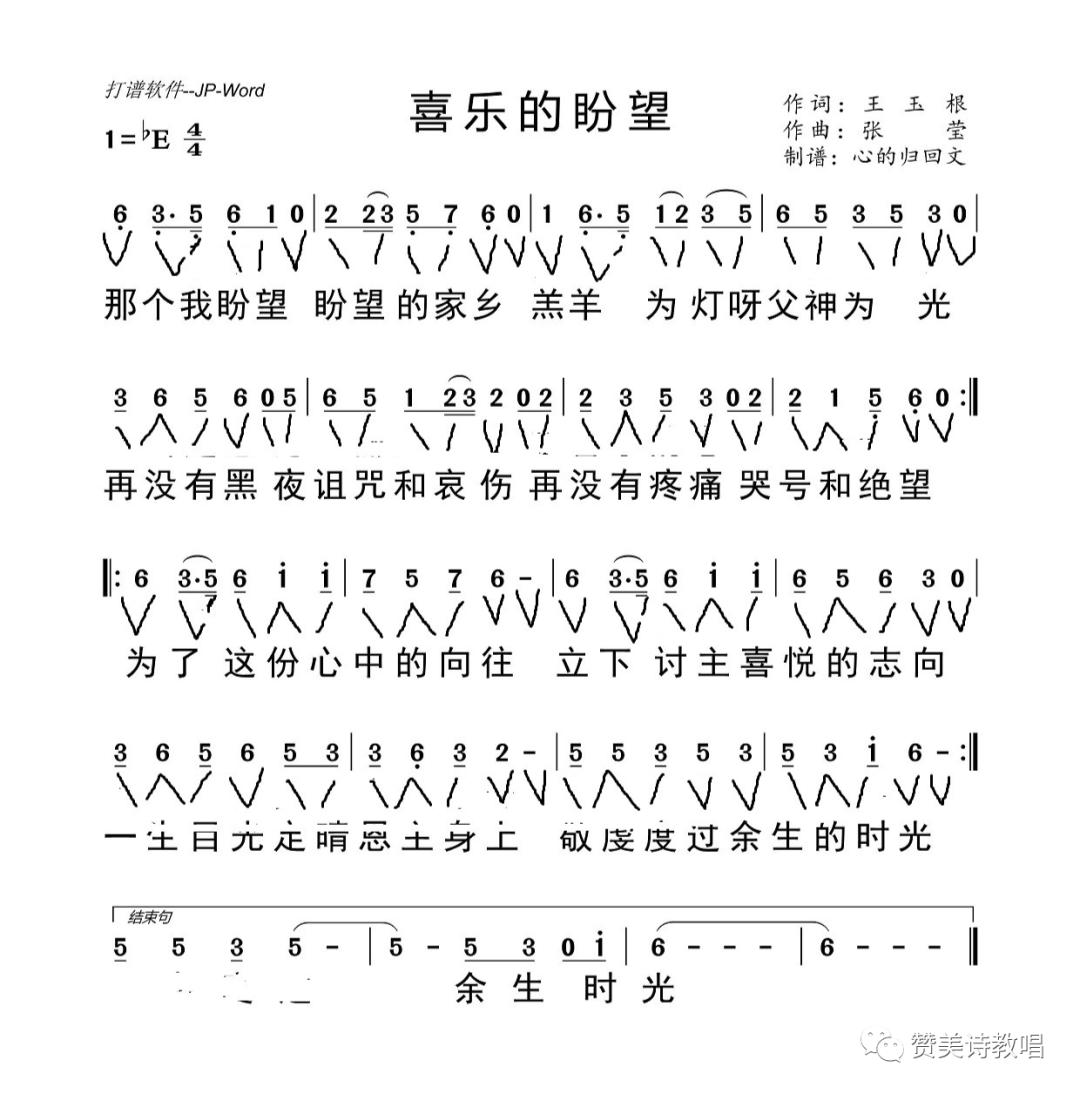 打谱软件--JP-Word
喜乐的盼望
作词：王玉根
1=♭E 4/4
作曲：张莹
制谱：心的归回文
6 3·5 6 1 0 | 2 23 5 7 6 0 | 1 6·5 12 3 5 | 6 5 3 5 3 0 |
那个我盼望 盼望的家乡 羔羊 为灯呀父神为 光
3 6 5 6 0 5 | 6 5 1 23 2 0 2 | 2 3 5 3 0 2 | 2 1 5 6 0 :||
再没有黑夜诅咒和哀伤 再没有疼痛 哭号和绝望
||: 6 3·5 6 i i | 7 5 7 6 - | 6 3·5 6 i i | 6 5 6 3 0 |
为了 这份心中的向往 立下 讨主喜悦的志向
3 6 5 6 5 3 | 3 6 3 2 - | 5 5 3 5 3 | 5 3 i 6 - :||
一生目光定睛恩主身上 敬虔度过余生的时光
结束句
5 5 3 5 - | 5 - 5 3 0 i | 6 - - - | 6 - - - ||
余生 时光
赞美诗教唱